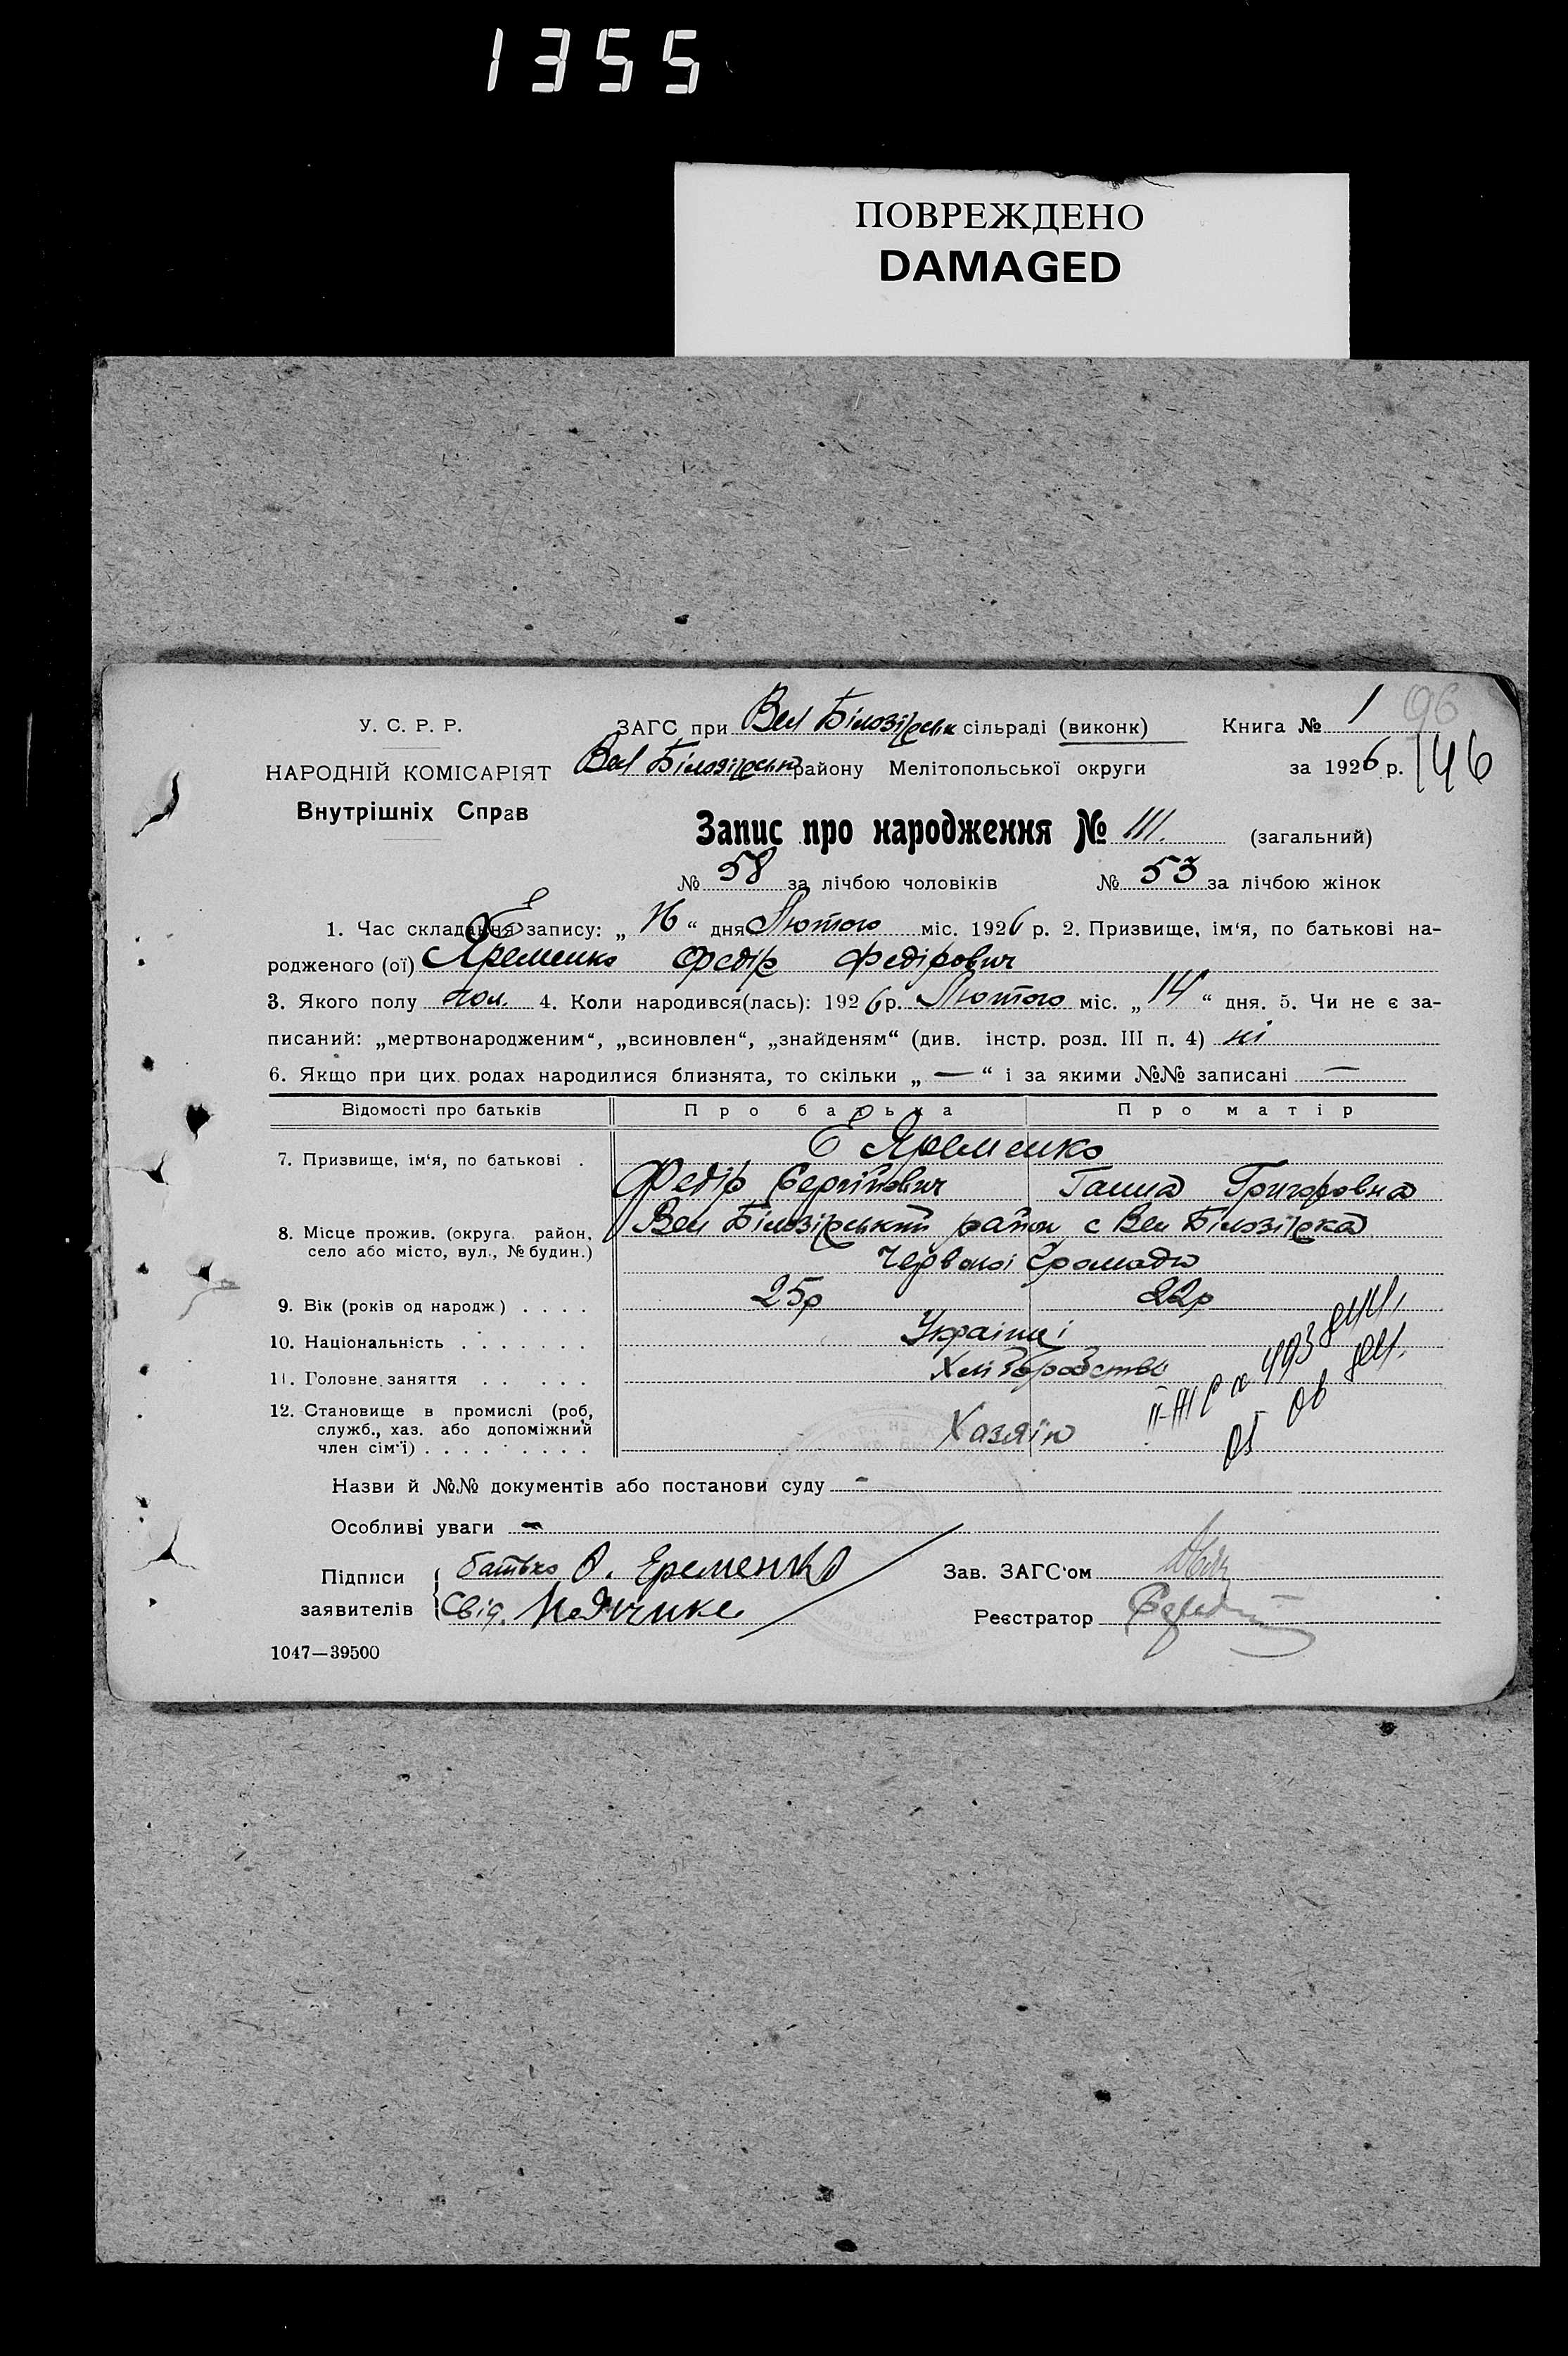 1355
ПОВРЕЖДЕНО
DAMAGED
У. С. Р. Р.
НАРОДНІЙ КОМІСАРІЯТ
Внутрішніх Справ
ЗАГС при Вел Білозірськ сільраді (виконк)
Книга № 1
96
Вел Білозірськ району Мелітопольської округи
за 1926 р.
146
Запис про народження № 111. (загальний)
№ 58 за лічбою чоловіків № 53 за лічбою жінок
Е
1. Час складання запису: „ 16 “ дня Лютого міс. 1926 р. 2. Призвище, ім‘я, по батькові на-
родженого (ої) Яременко Федір Федірович
3. Якого полу чол. 4. Коли народився(лась): 1926 р. Лютого міс. „ 14 “ дня. 5. Чи не є за-
писаний: „мертвонародженим“, „всиновлен“, „знайденям“ (див. інстр. розд. III п. 4) ні
6. Якщо при цих родах народилися близнята, то скільки „ — “ і за якими №№ записані —
Відомості про батьків Про батька Про матір
7. Призвище, ім‘я, по батькові . Е Яременко
Федір Сергійович Ганна Григоровна
8. Місце прожив. (округа, район,
село або місто, вул., № будин.)
Вел Білозірський район с Вел Білозірка
Червоної Громади
9. Вік (років од народж) . . . . 25р 22р
10. Національність . . . . . . . Українці
11. Головне заняття . . . . . Хліборобство
12. Становище в промислі (роб,
служб., хаз. або допоміжний
член сім‘ї) . . . . . . . . .
Хазяїн
Назви й №№ документів або постанови суду -
Особливі уваги -
Підписи
заявителів
батько Ф. Еременко
Свід.
Зав. ЗАГС‘ом
Реєстратор
1047—39500